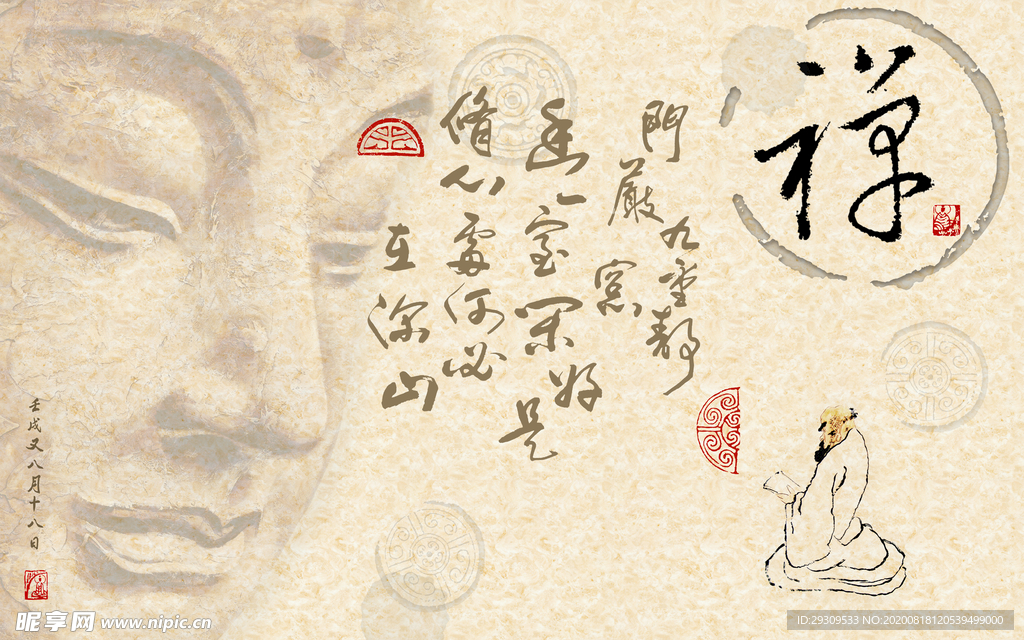 禪
門嚴
九重靜
窓
幽一室閑
好是
脩心處何必
在深山
壬戌又八月十八日
昵享网 www.nipic.cn
ID:29309533 NO:20200818120539499000